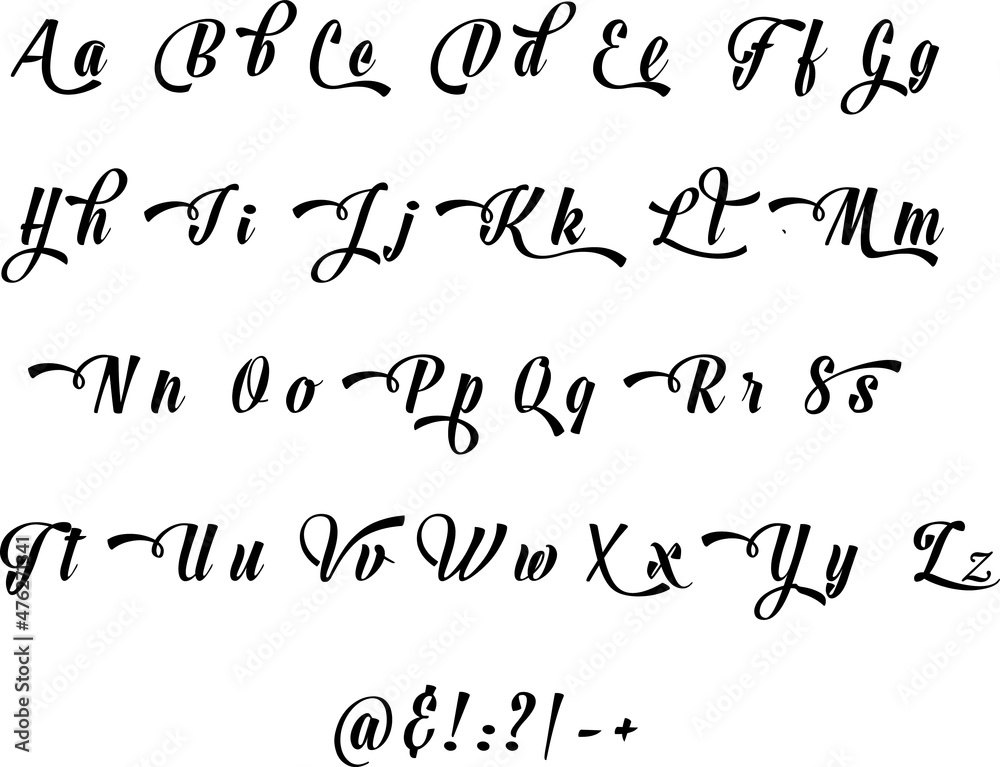 Aa Bb Cc Dd Ee Ff Gg
Hh Ii Jj Kk Ll Mm
Nn Oo Pp Qq Rr Ss
Tt Uu Vv Ww Xx Yy Zz
@&!:?|-+
Adobe Stock | #476271341